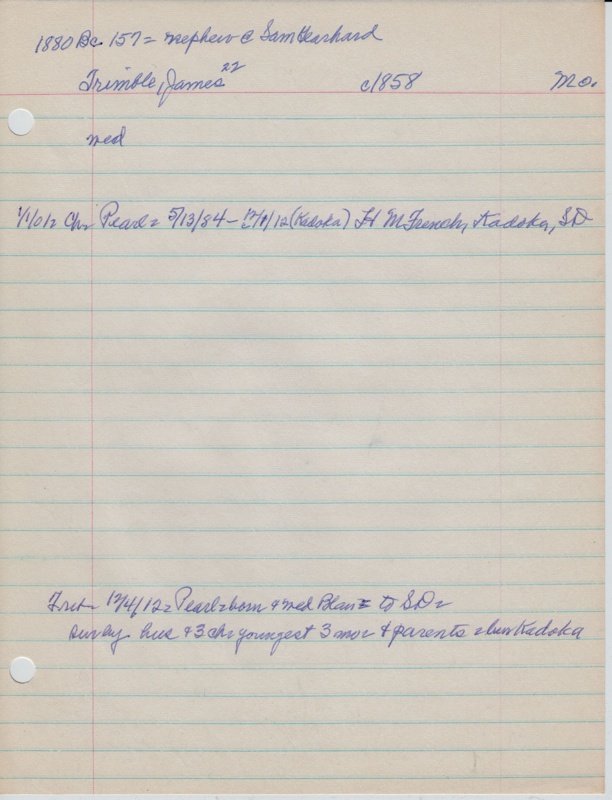 1880 Bc. 157 = nephew @ Sam Gearhard
Trimble, James 22 c1858 Mo.
med
1/1/01= Ch= Pearl= 5/13/84 - 12/1/12 (Kadoka) H M French, Kadoka, SD
12/4/12= Pearl= born & med Blair = to SD=
surv by hus & 3 ch= youngest 3 mo= & parents = bur Kadoka